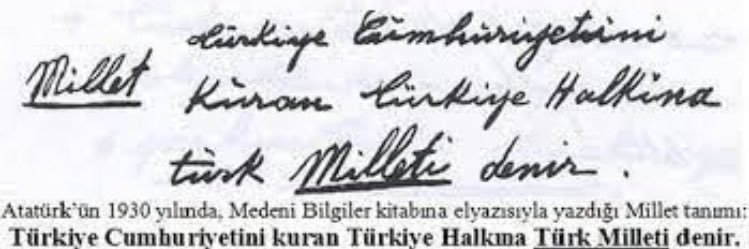 türkiye Cümhüriyetini
Millet Küran türkiye Halkina
türk Milleti denir.
Atatürk'ün 1930 yılında, Medeni Bilgiler kitabına elyazısıyla yazdığı Millet tanımı:
Türkiye Cumhuriyetini kuran Türkiye Halkına Türk Milleti denir.